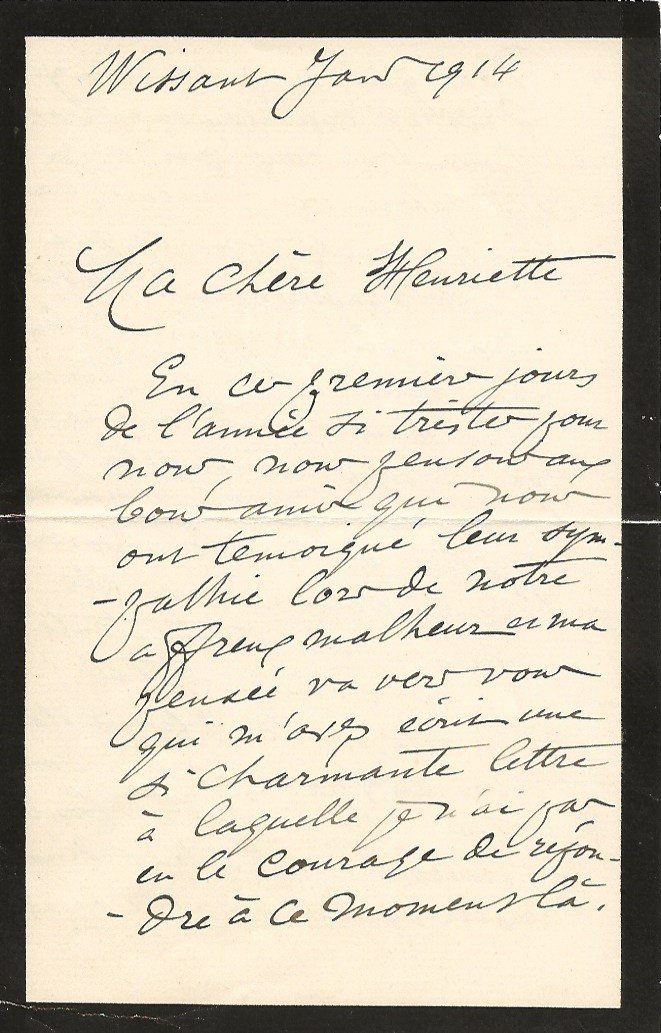 Wissant Janv 1914
Ma chère Henriette
En ces premiers jours
de l'année si tristes pour
nous, nous pensons aux
bons amis qui nous
ont temoigné leur sym-
-pathie lors de notre
affreux malheur et ma
pensée va vers vous
qui m'avez écrit une
si charmante lettre
à laquelle je n'ai pas
eu le courage de répon-
-dre à ce moment là.